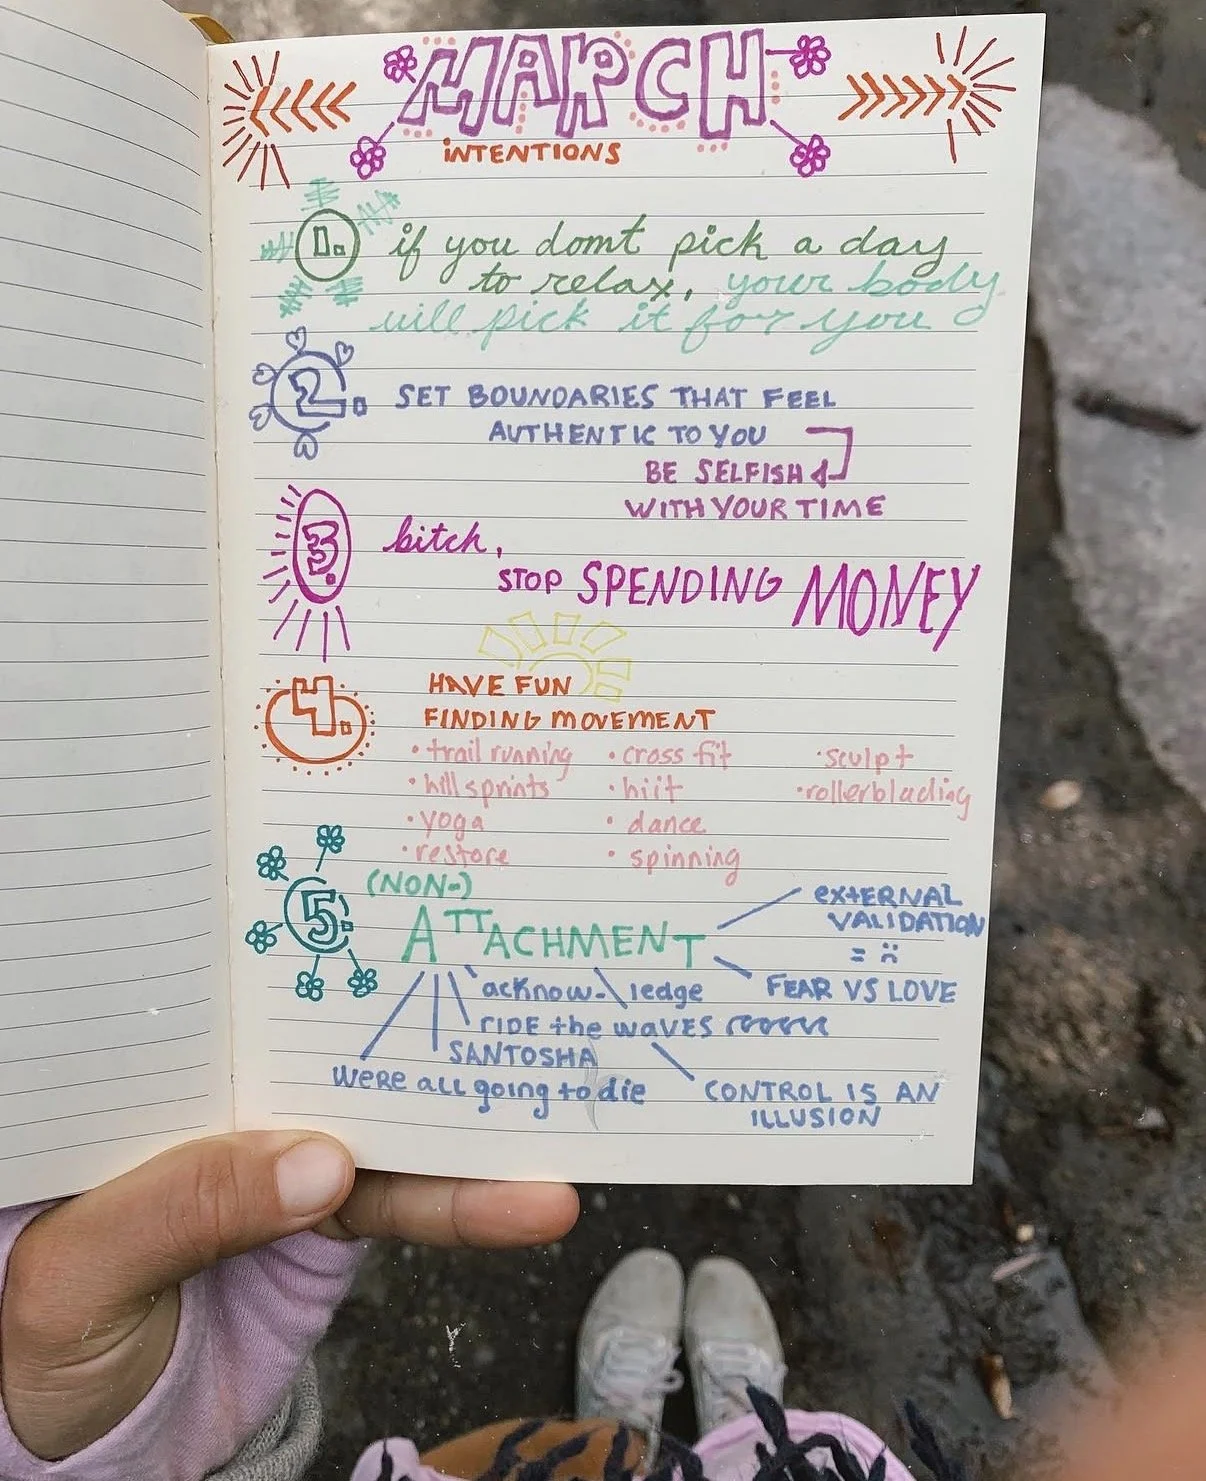 MARCH
INTENTIONS
1. if you domt pick a day
to relax, your body
will pick it for you
2. SET BOUNDARIES THAT FEEL
AUTHENTIC TO YOU
BE SELFISH
WITH YOUR TIME
3. bitch,
STOP SPENDING MONEY
4. HAVE FUN
FINDING MOVEMENT
• trail running • cross fit • sculpt
• hill sprints • hiit • rollerblading
• yoga • dance
• restore • spinning
5. (NON-)
ATTACHMENT
external
VALIDATION
= :(
acknow-ledge
FEAR VS LOVE
RIDE the WAVES
SANTOSHA
were all going to die
CONTROL IS AN
ILLUSION